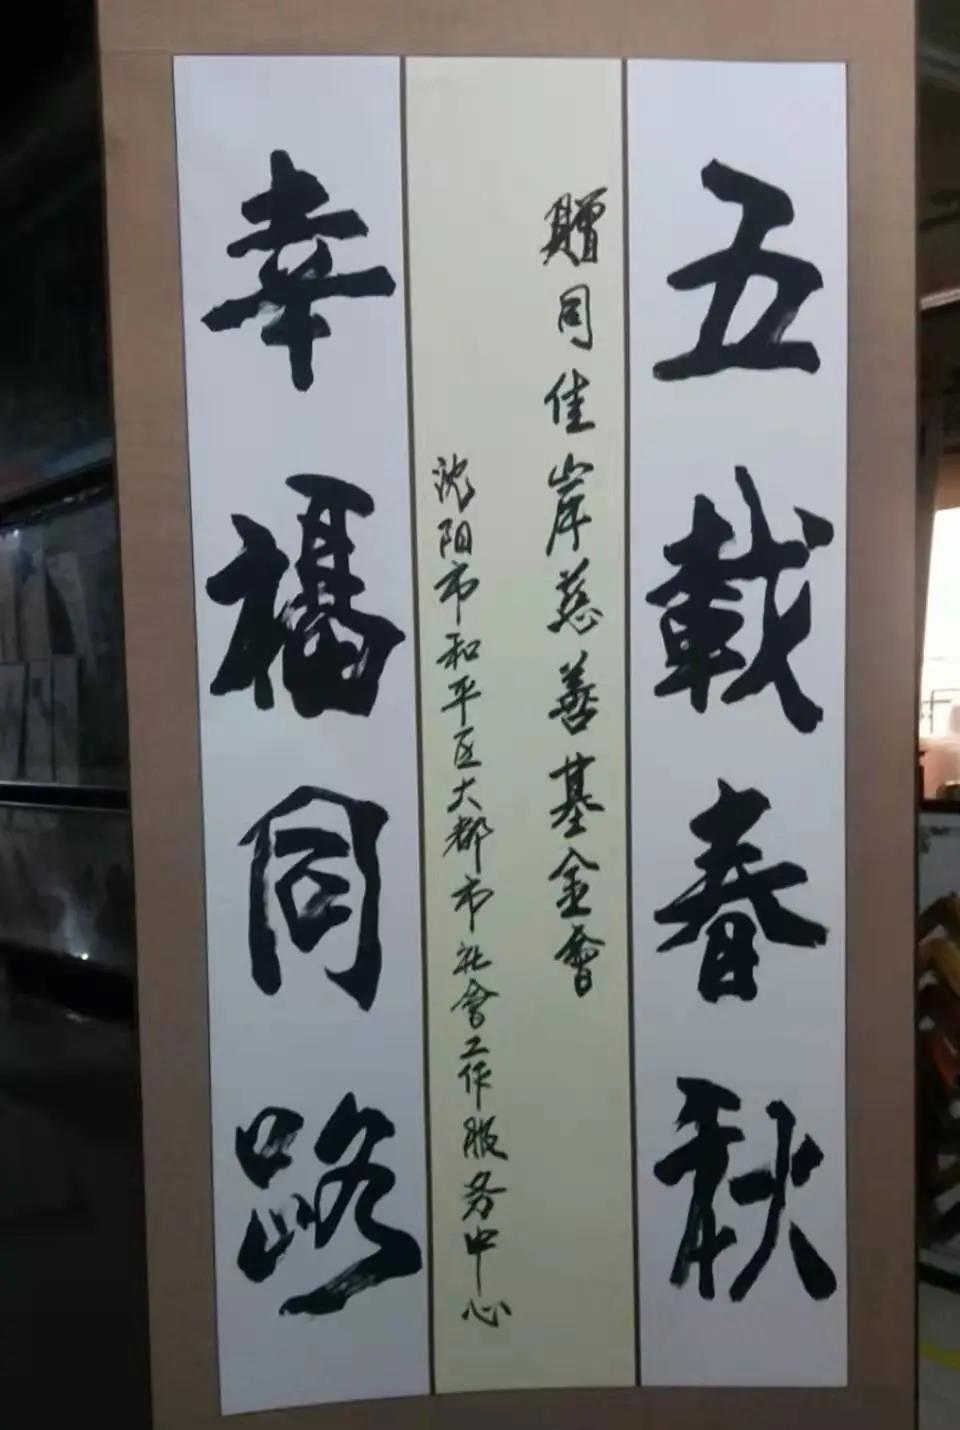 五載春秋
贈同佳岸慈善基金會
沈阳市和平区大都市社會工作服务中心
幸福同路